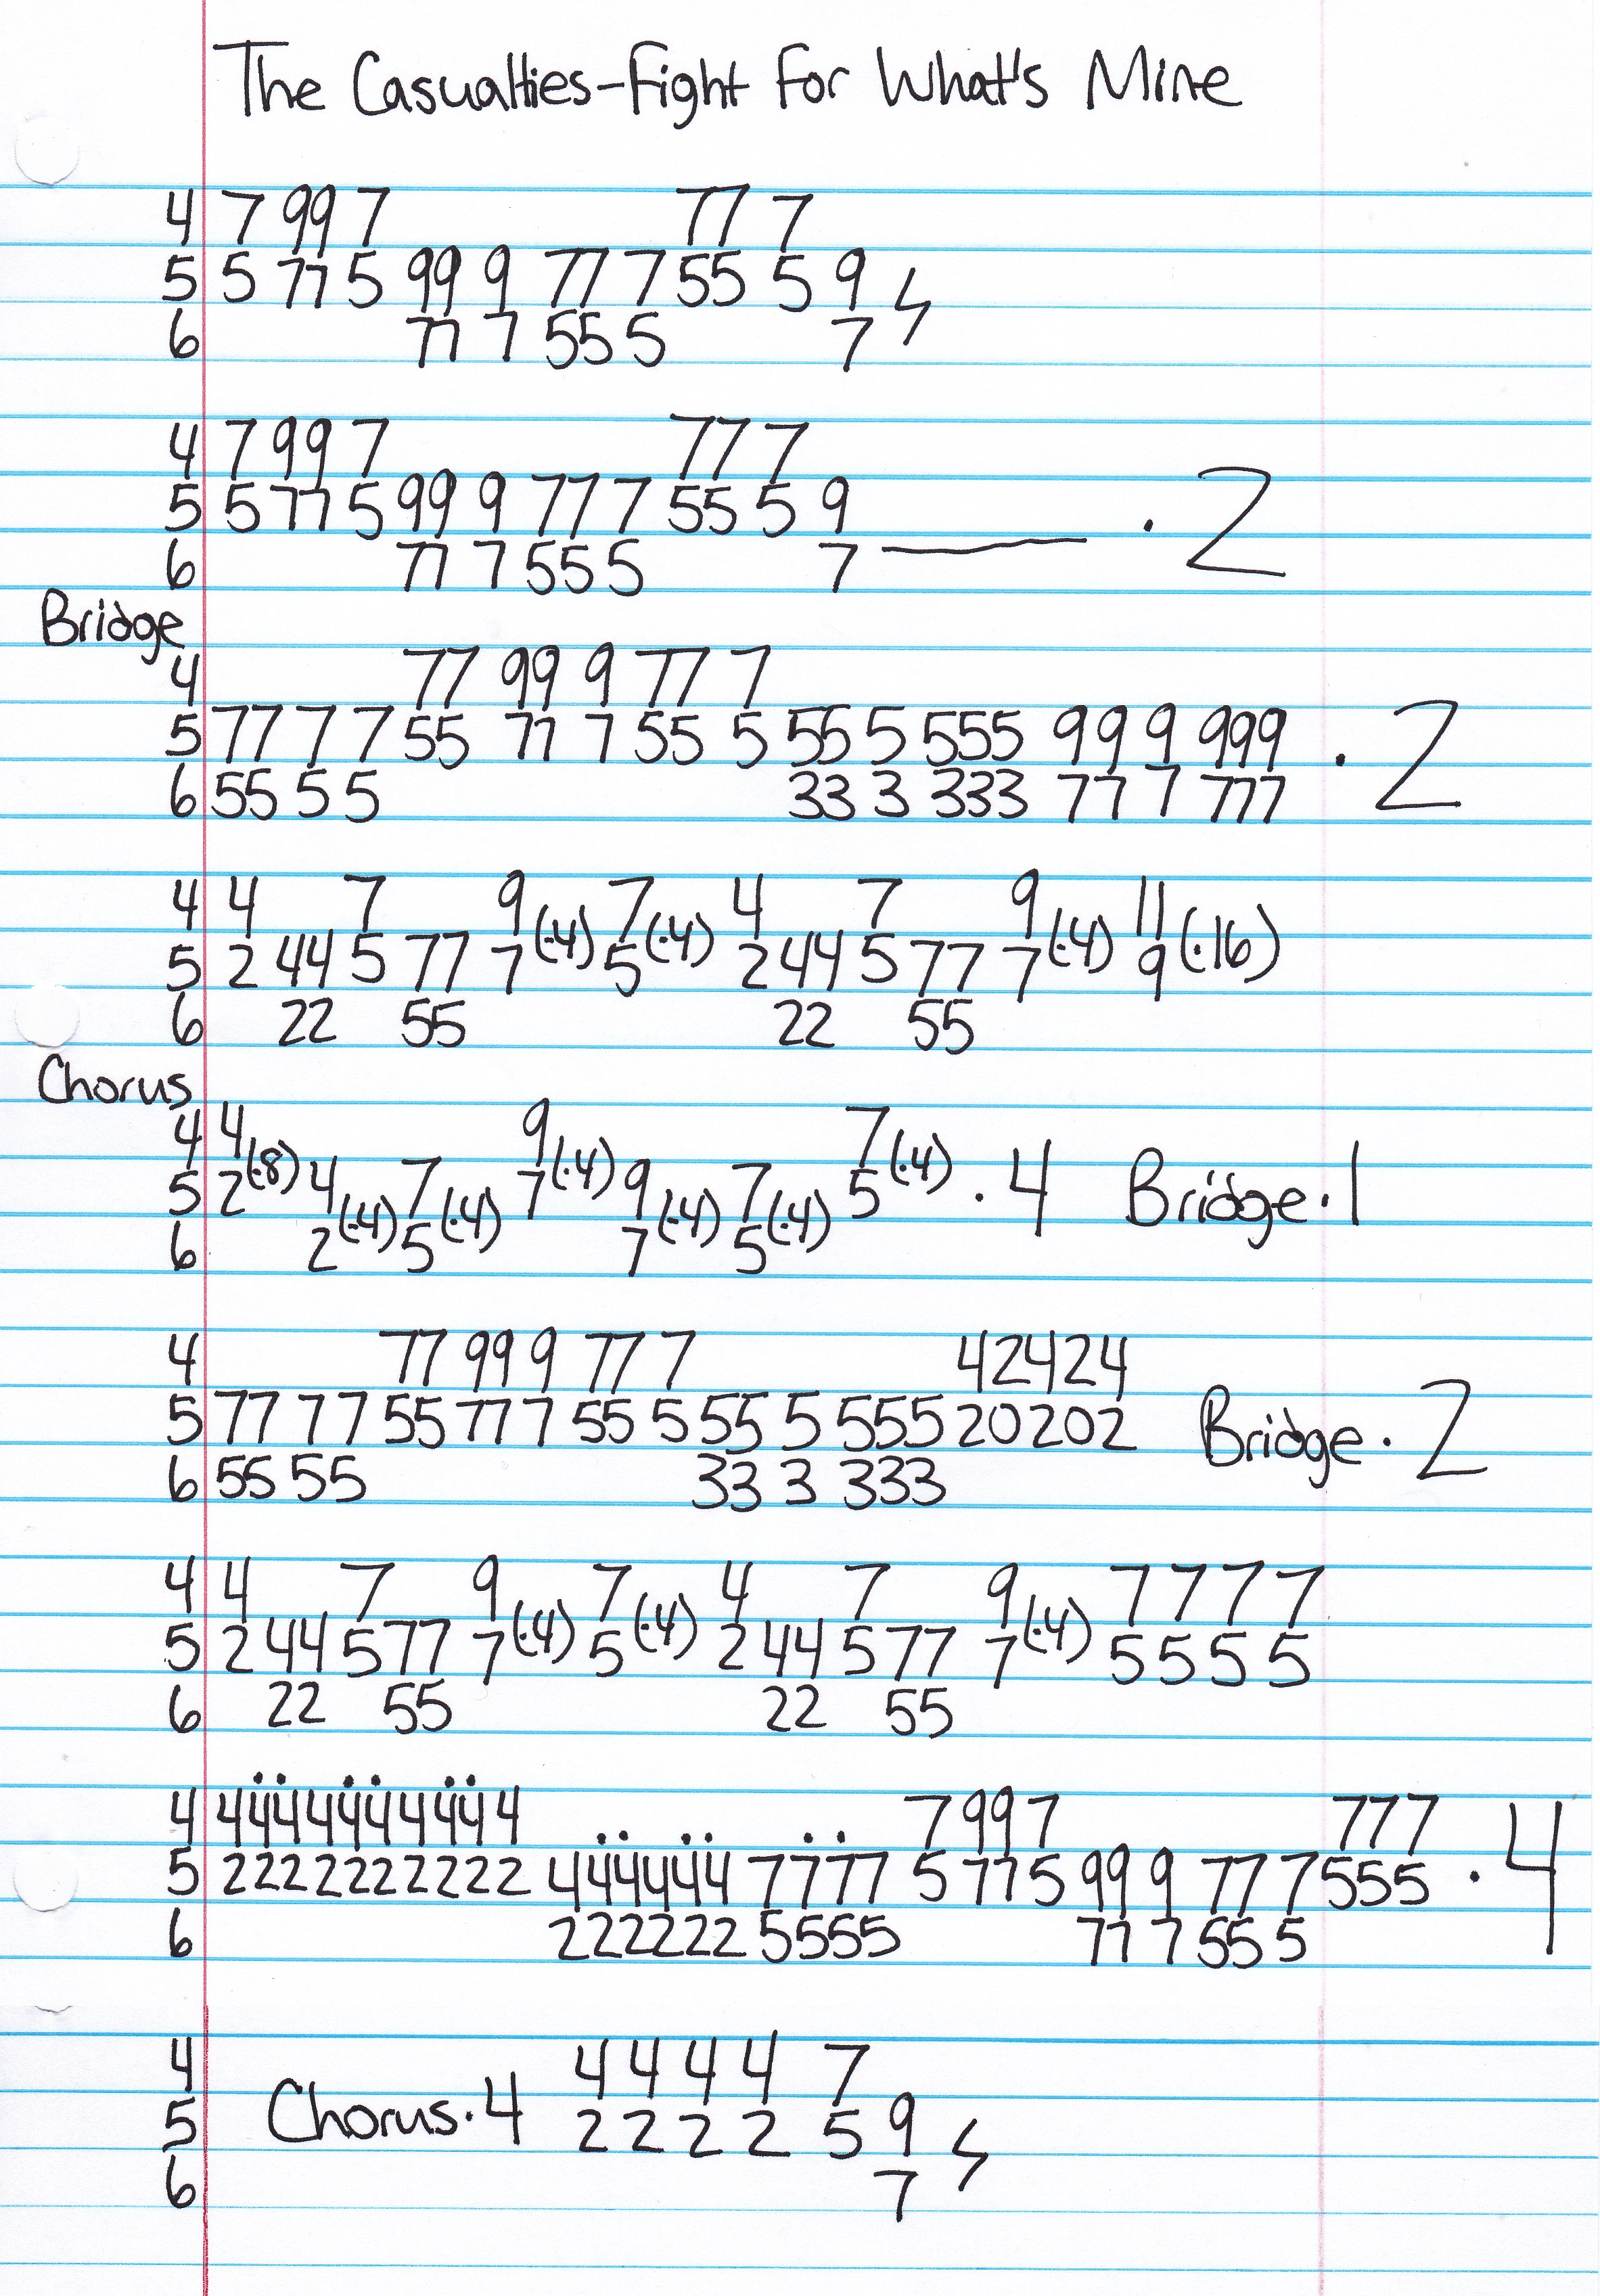 The Casualties-Fight For What's Mine
4 7 99 7 77 7
5 5 77 5 99 9 77 7 55 5 9
6 77 7 55 5 7
4 7 99 7 77 7
5 5 77 5 99 9 77 7 55 5 9
6 77 7 55 5 7 —— · 2
Bridge
4 77 99 9 77 7
5 77 7 7 55 77 7 55 5 55 5 555 99 9 999 · 2
6 55 5 5 33 3 333 77 7 777
4 4 7 9 (·4) 7 (·4) 4 7 9 (·4) 11 (·16)
5 2 44 5 77 7 5 2 44 5 77 7 9
6 22 55 22 55
Chorus
4 4 (·8) 9 (·4) 7 (·4)
5 2 4 (·4) 7 (·4) 7 9 (·4) 7 (·4) 5 · 4 Bridge·1
6 2 5 7 5
4 77 99 9 77 7 42424
5 77 77 55 77 7 55 5 55 5 555 20202 Bridge·2
6 55 55 33 3 333
4 4 7 9 (·4) 7 (·4) 4 7 9 (·4) 7 7 7 7
5 2 44 5 77 7 5 2 44 5 77 7 5 5 5 5
6 22 55 22 55
4 4444444444 7 99 7 777
5 2222222222 444444 7777 5 77 5 99 9 77 7 555 · 4
6 222222 5555 77 7 55 5
4 4 4 4 4 7
5 Chorus·4 2 2 2 2 5 9
6 7